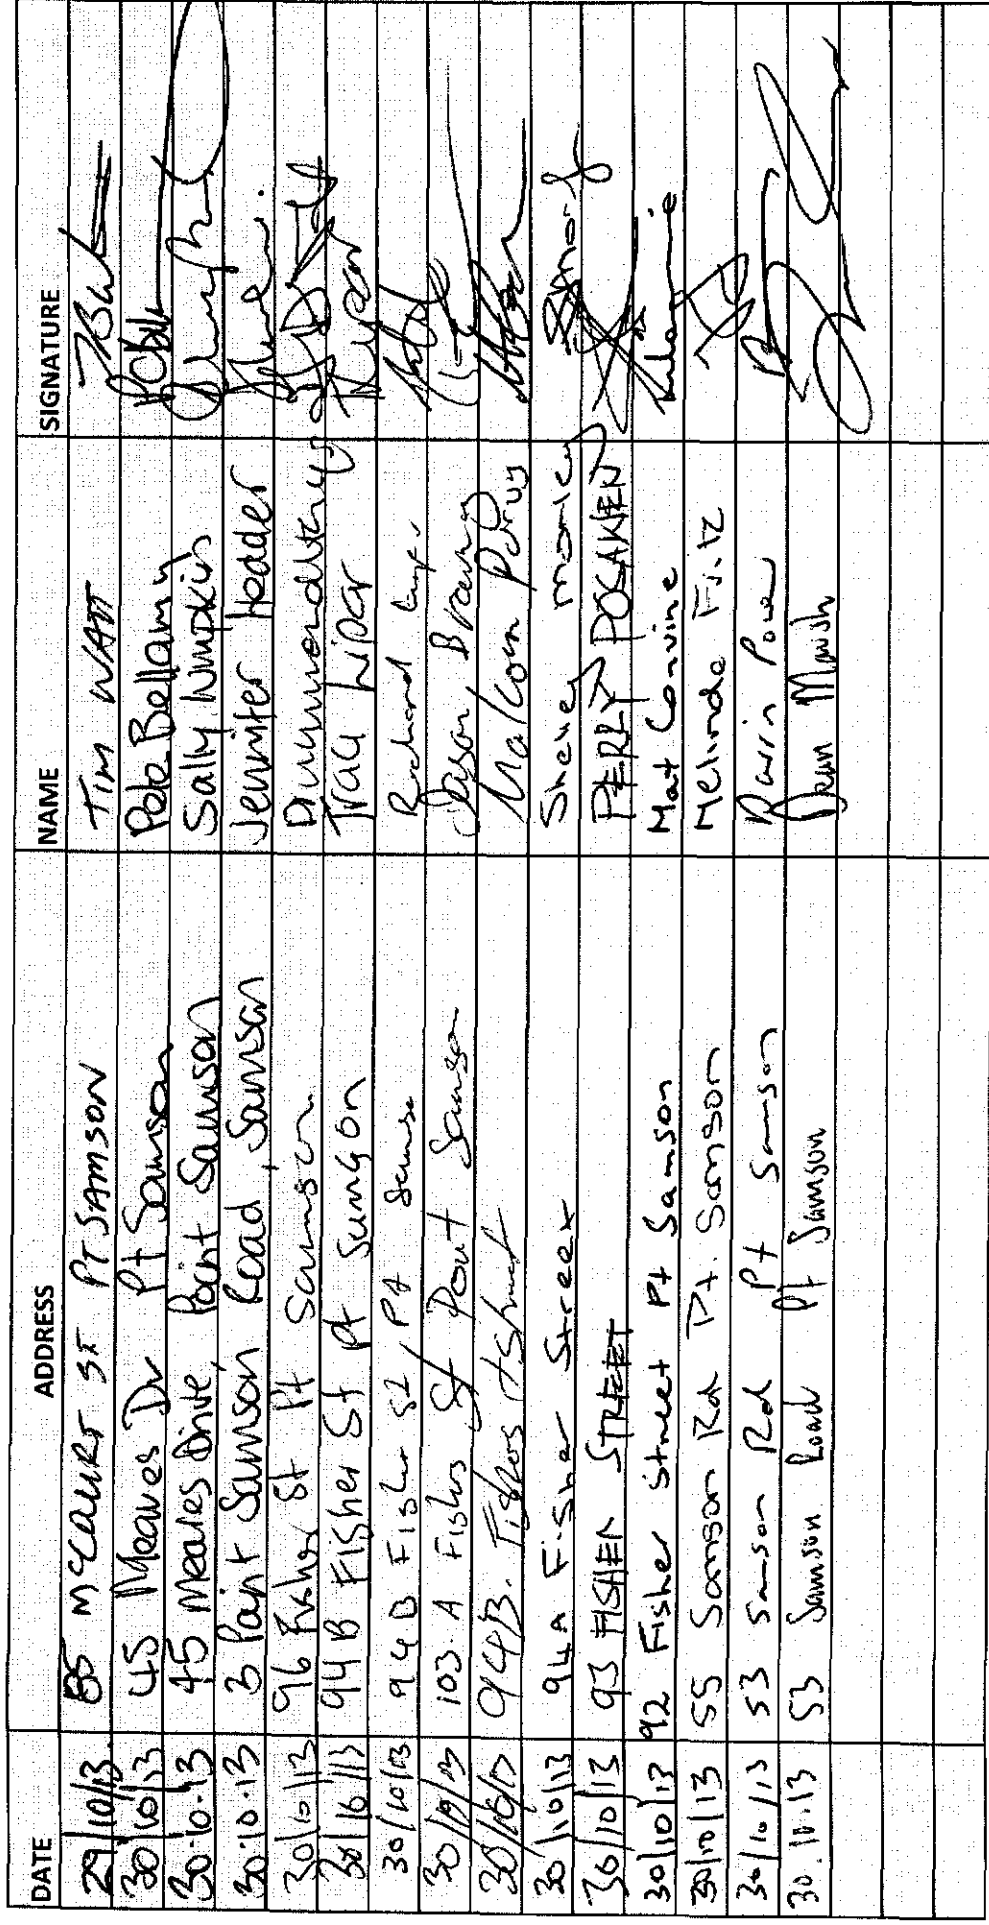 DATE ADDRESS NAME SIGNATURE
29/10/13 55 McCOURT ST PT SAMSON Tim WATT
30/10/13 45 Meares Dr Pt Samson Pete Bellamy
30.10.13 45 Meares Drive, Point Samson Sally
30.10.13 3 Point Samson Road, Samson Jennifer Hodder
30/10/13 96 Fisher St Pt Samson
30/10/13 94 B Fisher St pt Samson Traci Lipar
30/10/13 94 B Fisher St, Pt Samson Richard
30/10/13 103.A Fisher St Point Samson Jason
30/10/13 94B. Fisher Street Malcom
30/10/13 94A Fisher Street Shelley
30/10/13 93 FISHER STREET PERRY
30/10/13 92 Fisher Street Pt Samson Mat Convine
30/10/13 55 Samson Rd Pt. Samson Melinda Fitz
30/10/13 53 Samson Rd Pt Samson
30.10.13 53 Samson Road Pt Samson Dean Marsh